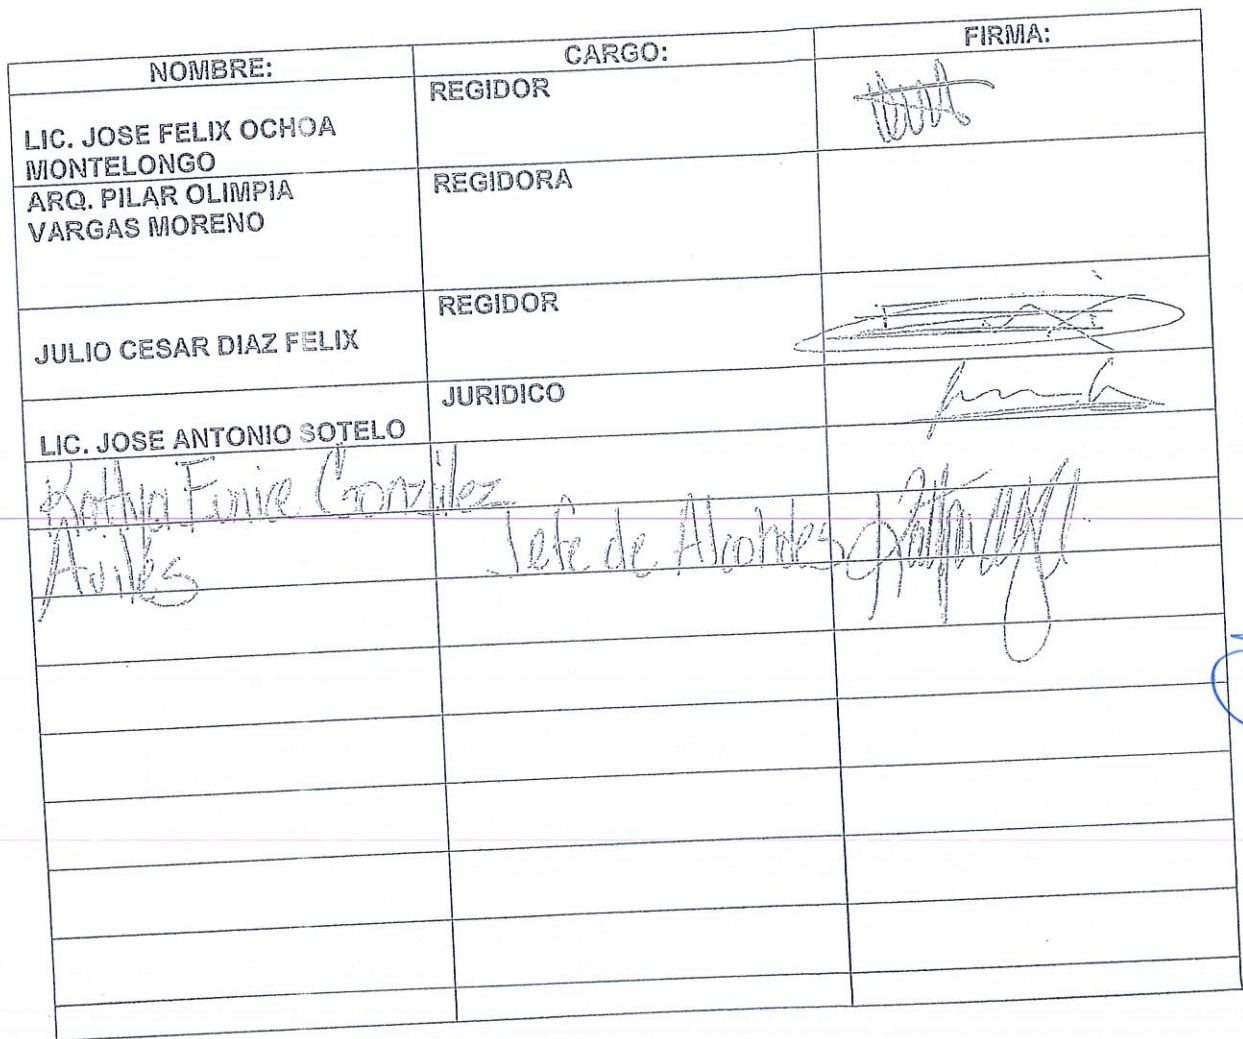 NOMBRE: CARGO: FIRMA:
LIC. JOSE FELIX OCHOA
MONTELONGO
REGIDOR
ARQ. PILAR OLIMPIA
VARGAS MORENO
REGIDORA
JULIO CESAR DIAZ FELIX
REGIDOR
LIC. JOSE ANTONIO SOTELO
JURIDICO
Kathya Eunice González
Aviles
Jefe de Alcoholes